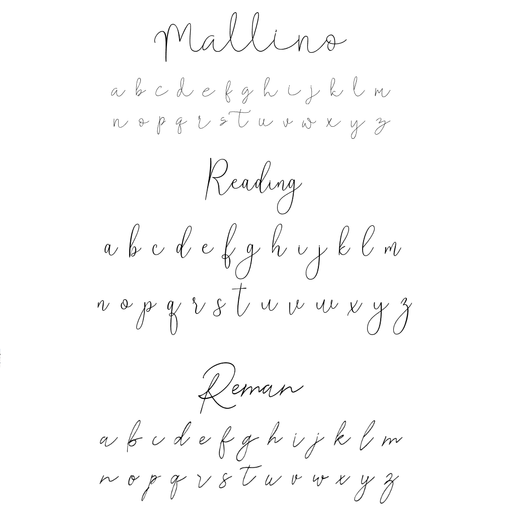 Mallino
a b c d e f g h i j k l m
n o p q r s t u v w x y z
Reading
a b c d e f g h i j k l m
n o p q r s t u v w x y z
Reman
a b c d e f g h i j k l m
n o p q r s t u v w x y z